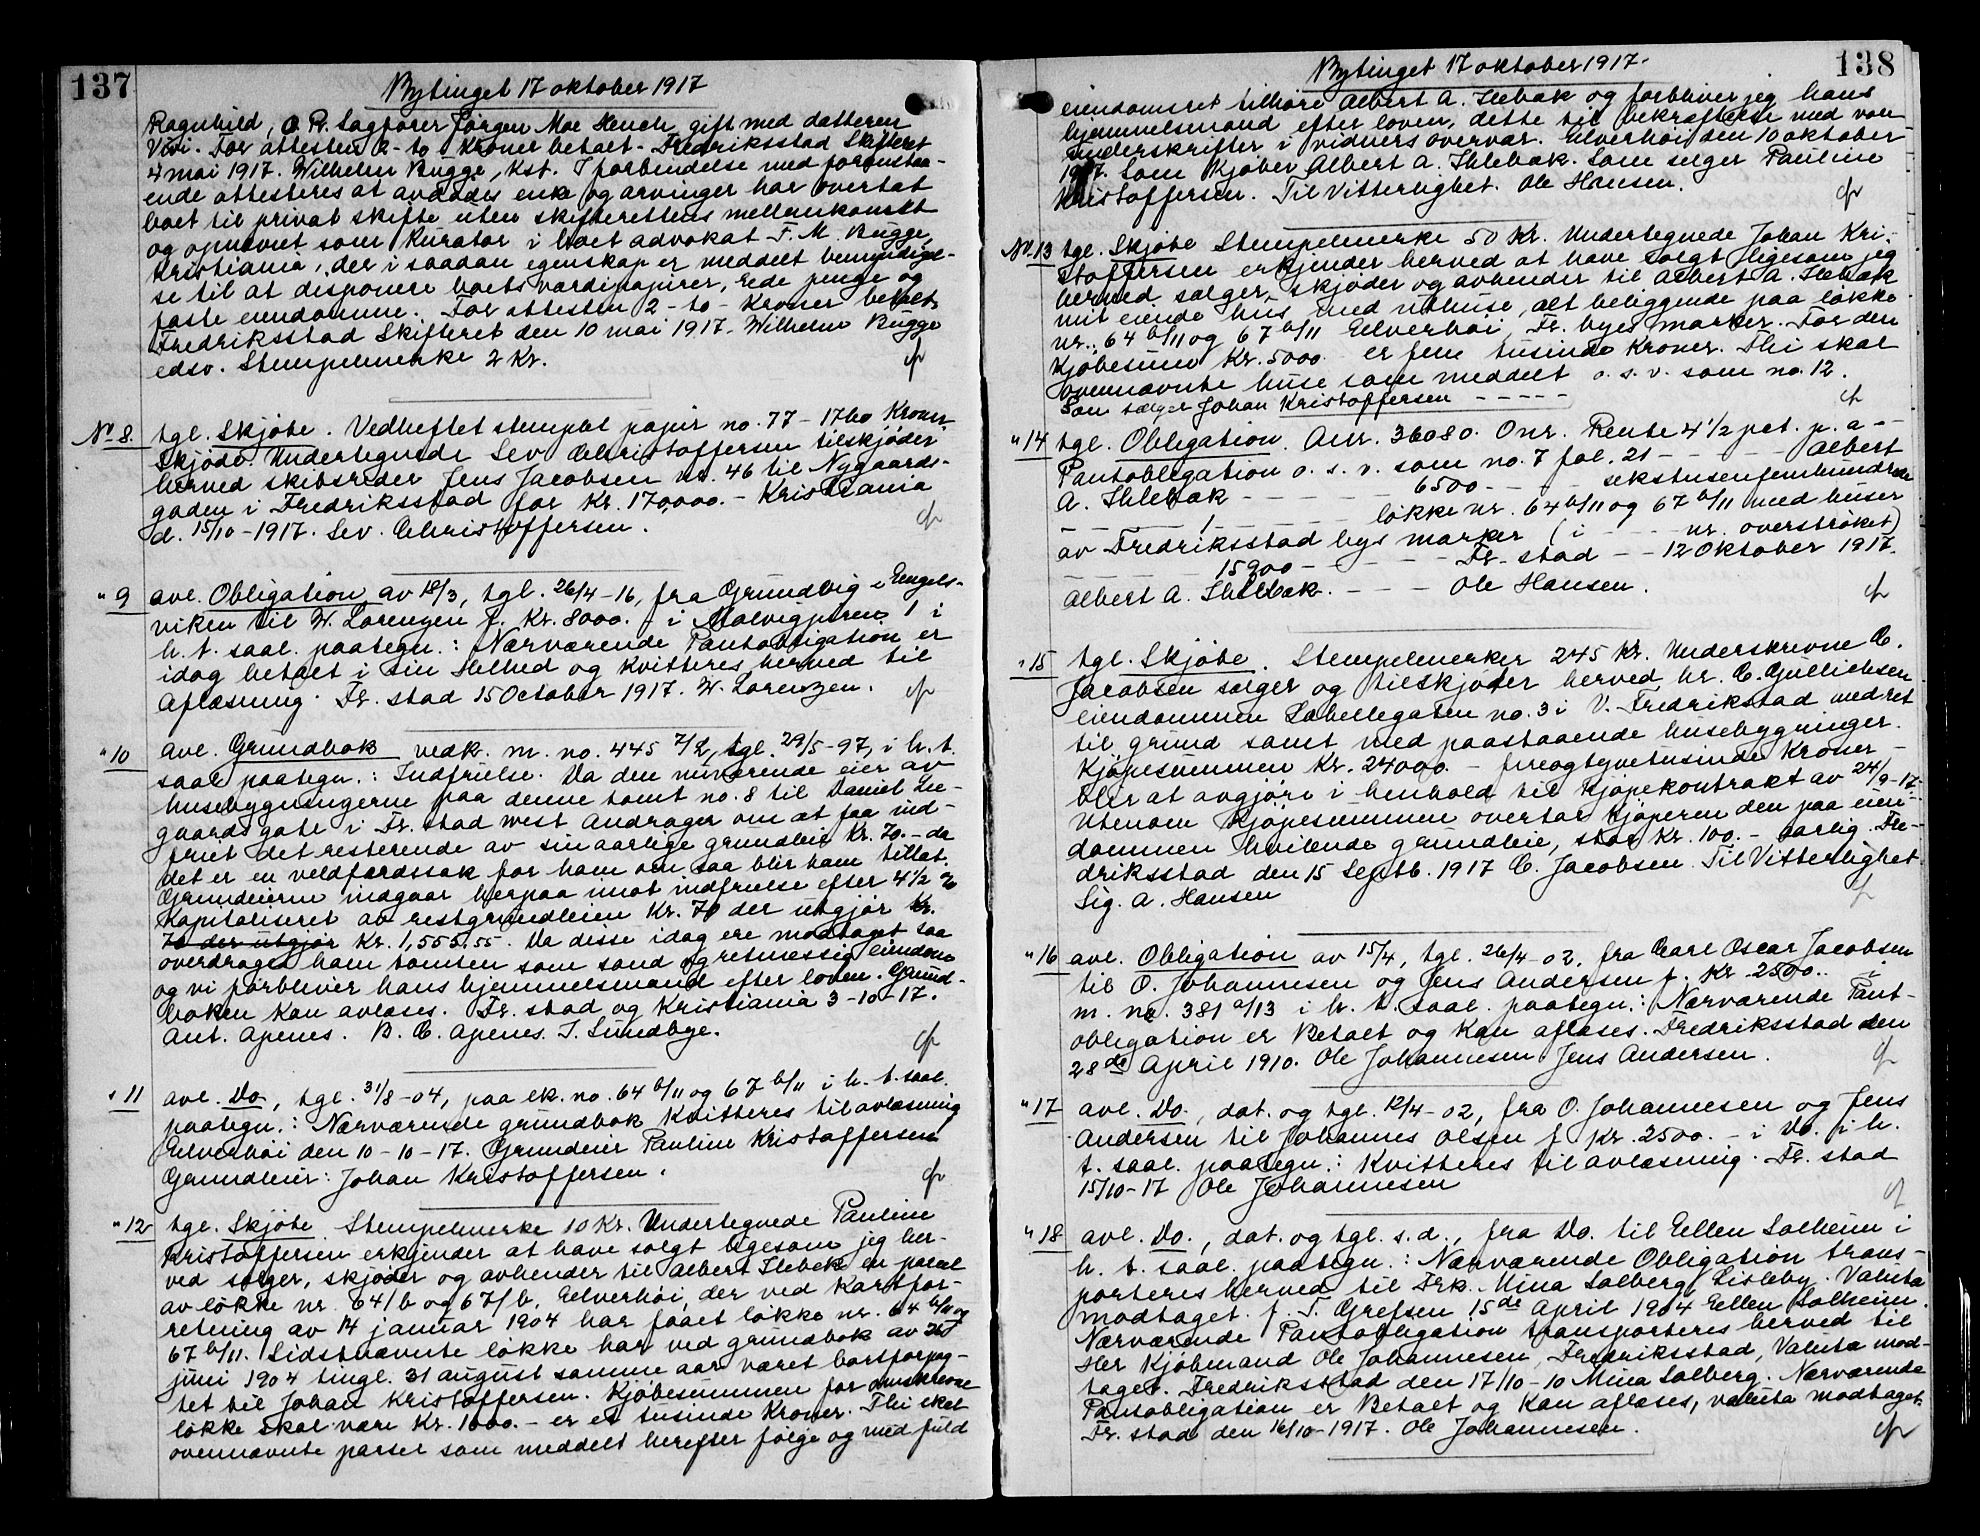 137
Bytinget 17 oktober 1917
Ragnhild, O. R. Sagfører Jørgen Moe Heuch, gift med datteren
Vivi. For attesten 2 - to - Kroner betalt. Fredriksstad Skifteret
4 mai 1917. Wilhelm Bugge, Kst. I forbindelse med foranstaa-
ende attesteres at avdødes enke og arvinger har overtat
boet til privat skifte uten skifterettens mellemkomst
og opnævnt som Kurator i boet advokat F. M. Bugge,
Kristiania, der i saadan egenskap er meddelt bemyndigel-
se til at disponere boets værdipapirer, rede penge og
faste eiendomme. For attesten 2 - to - Kroner betalt.
Fredriksstad Skifteret den 10 mai 1917. Wilhelm Bugge
edsv. Stempelmerke 2 Kr.
No 8. tgl. Skjøte. Vedheftet stemplet papir no. 77 - 1760 Kroner.
Skjøde. Undertegnede Sev. Christoffersen tilskjøder
herved skibsreder Jens Jacobsen nr. 46 til Nygaards-
gaden i Fredriksstad for Kr. 170,000.- Kristiania
d. 15/10-1917. Sev. Christoffersen.
" 9 avl. Obligation av 18/3, tgl. 26/4-16, fra Grundvig i Engels-
viken til W. Lorenzen f. Kr. 8000. - i Malvigjorens 1 i
h. t. saal. paategn.: Nærværende Pantobligation er
idag betalt i sin Helhed og Kvitteres herved til
Aflæsning. Fr. stad 15 October 1917. W. Lorenzen.
" 10 avl. Grundbok vedk. m. no. 445 7/2, tgl. 29/5-97, i h. t.
saal paategn.: Indfrielse. Da den nuværende eier av
husebygningerne paa denne tomt no. 8 til Daniel Lee-
gaards gate i Fr. stad west andrager om at faa ind-
friet det resterende av sin aarlige grundleie Kr. 70.- da
det er en velfærdssak for ham om saa blir ham tillat.
Grundeierne indgaar herpaa mot indfrielse efter 4 1/2 %
Kapitaliseret av restgrundleien Kr. 70 der utgjør Kr.
70 der utgjør Kr. 1,555.55. Da disse idag ere modtaget saa
overdrages ham tomten som sand og retmessig eiendom
og vi forbliver hans hjemmelsmænd efter loven. Grund-
boken Kan avlæses. Fr. stad og Kristiania 3-10-17.
Ant. Apenes. B. C. Apenes. T. Sundbye.
" 11 avl. Do, tgl. 31/8-04, paa ek. no. 64 b/11 og 67 b/11 i h. t. saal.
paategn.: Nærværende grundbok Kvitteres til avlæsning
Eelverhøi den 10-10-17. Grundeier Pauline Kristoffersen
Grundleier: Johan Kristoffersen.
" 12 tgl. Skjøte Stempelmerke 10 Kr. Undertegnede Pauline
Kristoffersen erkjender at have solgt ligesom jeg her-
ved sælger, skjøder og avhender til Albert Ilebek en parcel
av løkke nr. 64/b og 67/b, Eelverhøi, der ved Kartfor-
retning av 14 januar 1904 har faaet løkke nr. 64 b/11 og
67 b/11. Sidstnævnte løkke har ved grundbok av
juni 1904 tingl. 31 august samme aar været bortforpag-
tet til Johan Kristoffersen. Kjøbesummen for omskrevne
løkke skal være Kr. 1000.- er et tusinde Kroner. Thi skal
ovennævnte parsel som meddelt herefter følge og med fuld
138
Bytinget 17 oktober 1917.
eiendomsret tilhøre Albert A. Ilebæk og forbliver jeg hans
hjemmelsmand efter loven, dette til bekræftelse med vor
underskrifter i vidners overvær. Eelverhøi den 10 oktober
1917. Som Kjøber Albert A. Ihlebæk. Som selger Pauline
Kristoffersen. Til Vitterlighet. Ole Hansen.
No. 13 tgl. Skjøte Stempelmerke 50 Kr. Undertegnede Johan Kri-
stoffersen erkjender herved at have solgt ligesom jeg
herved sælger, skjøder og avhender til Albert A. Ilebæk
mit eiende hus med uthuse, alt beliggende paa løkke
nr. 64 b/11 og 67 b/11 Eelverhøi, Fr. byes marker. For den
Kjøbesum Kr. 5000. er fem tusinde Kroner. Thi skal
ovennævnte huse som meddelt o. s. v. som no. 12.
Som sælger Johan Kristoffersen - - - - -
" 14 tgl. Obligation. Anr. 36080. Onr. Rente 4 1/2 pct. p. a - -
Pantobligation o. s. v. som no. 7 fol. 21 - - - - - Albert
A. Ihlebæk - - - - - 6500 - - - - sekstusenfemhundrede
- - - - - 1 - - - - - løkke nr. 64 b/11 og 67 b/11 med huser
av Fredriksstad bys marker (i - - - nr. overstrøket)
- - - - - 15900 - - - - - Fr. stad - - 12 Oktober 1917.
Albert A. Ihlebæk. - - - Ole Hansen.
" 15 tgl. Skjøte. Stempelmerker 245 Kr. Underskrevne C.
Jacobsen sælger og tilskjøter herved hr. C. Gullichsen
eiendommen Labellegaten no. 3 i V. Fredrikstad med ret
til grund samt med paastaaende husebygninger.
Kjøpesummen Kr. 24000. - fireogtyvetusinde Kroner -
blir at avgjøre i henhold til Kjøpekontrakt av 24/9-17.
Utenom Kjøpesummen overtar Kjøperen den paa eien-
dommen hvilende grundleie, stor Kr. 100.- aarlig. Fre-
driksstad den 15 Septb. 1917 C. Jacobsen. Til Vitterlighet
Sig. A. Hansen
" 16 avl. Obligation av 15/4, tgl. 26/4-02, fra Carl Oscar Jacobsen
til O. Johannesen og Jens Andersen f. Kr. 2500.. i
m. no. 381 a/13 i h. t. saal. paategn.: Nærværende Pant-
obligation er Betalt og Kan aflæses. Fredriksstad den
28de April 1910. Ole Johannesen Jens Andersen.
" 17 avl. Do., dat. og tgl. 12/4-02, fra O. Johannesen og Jens
Andersen til Johannes Olsen f. Kr. 2500. - i Do. i h.
t. saal. paategn.: Kvitteres til avlæsning. Fr. stad
15/10-17 Ole Johannesen
" 18 avl. Do., dat. og tgl. s. d., fra Do. til Ellen Solheim i
h. t. saal. paategn.: Nærværende Obligation trans-
porteres herved til Frk. Mina Solberg, Lisleby. Valuta
modtaget. f. T. Grefsen 15de April 1904 Ellen Solheim.
Nærværende Pantobligation transporteres herved til
Her Kjøbmand Ole Johannesen, Fredriksstad, Valuta mod-
taget. Fredriksstad den 17/10-10 Mina Solberg. Nærværende
Pantobligation er Betalt og Kan aflæses, valuta modtaget.
Fr. stad den 16/10-1917. Ole Johannesen.